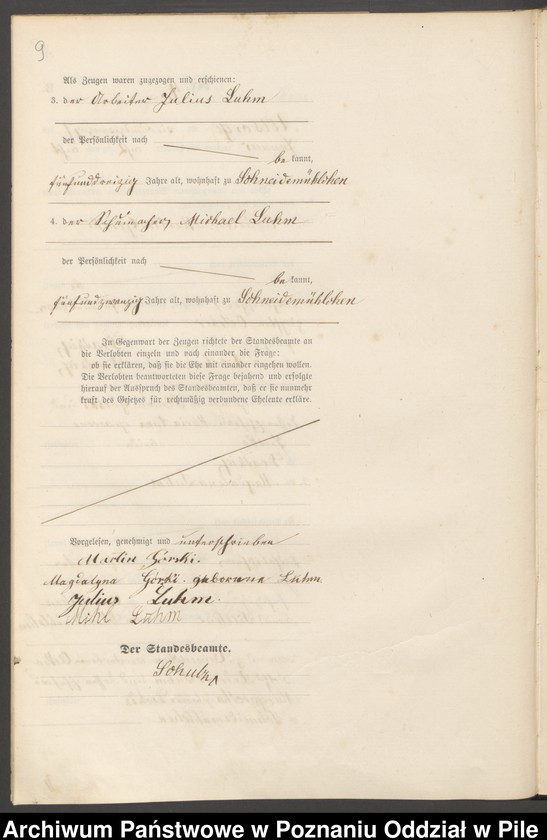 9
Als Zeugen waren zugezogen und erschienen:
3. der Arbeiter Julius Luhm
der Persönlichkeit nach
be kannt,
fünfunddreizig Jahre alt, wohnhaft zu Schneidemühlchen
4. der Schumacher Michael Luhm
der Persönlichkeit nach
be kannt,
fünfundzwanzig Jahre alt, wohnhaft zu Schneidemühlchen
In Gegenwart der Zeugen richtete der Standesbeamte an
die Verlobten einzeln und nach einander die Frage:
ob sie erklären, daß sie die Ehe mit einander eingehen wollen.
Die Verlobten beantworteten diese Frage bejahend und erfolgte
hierauf der Ausspruch des Standesbeamten, daß er sie nunmehr
kraft des Gesetzes für rechtmäßig verbundene Eheleute erkläre.
Vorgelesen, genehmigt und unterschrieben
Martin Górski.
Magdalyna Górski. geborenne Luhm
Julius Luhm.
Mihl Luhm
Der Standesbeamte.
Schulz
Archiwum Państwowe w Poznaniu Oddział w Pile